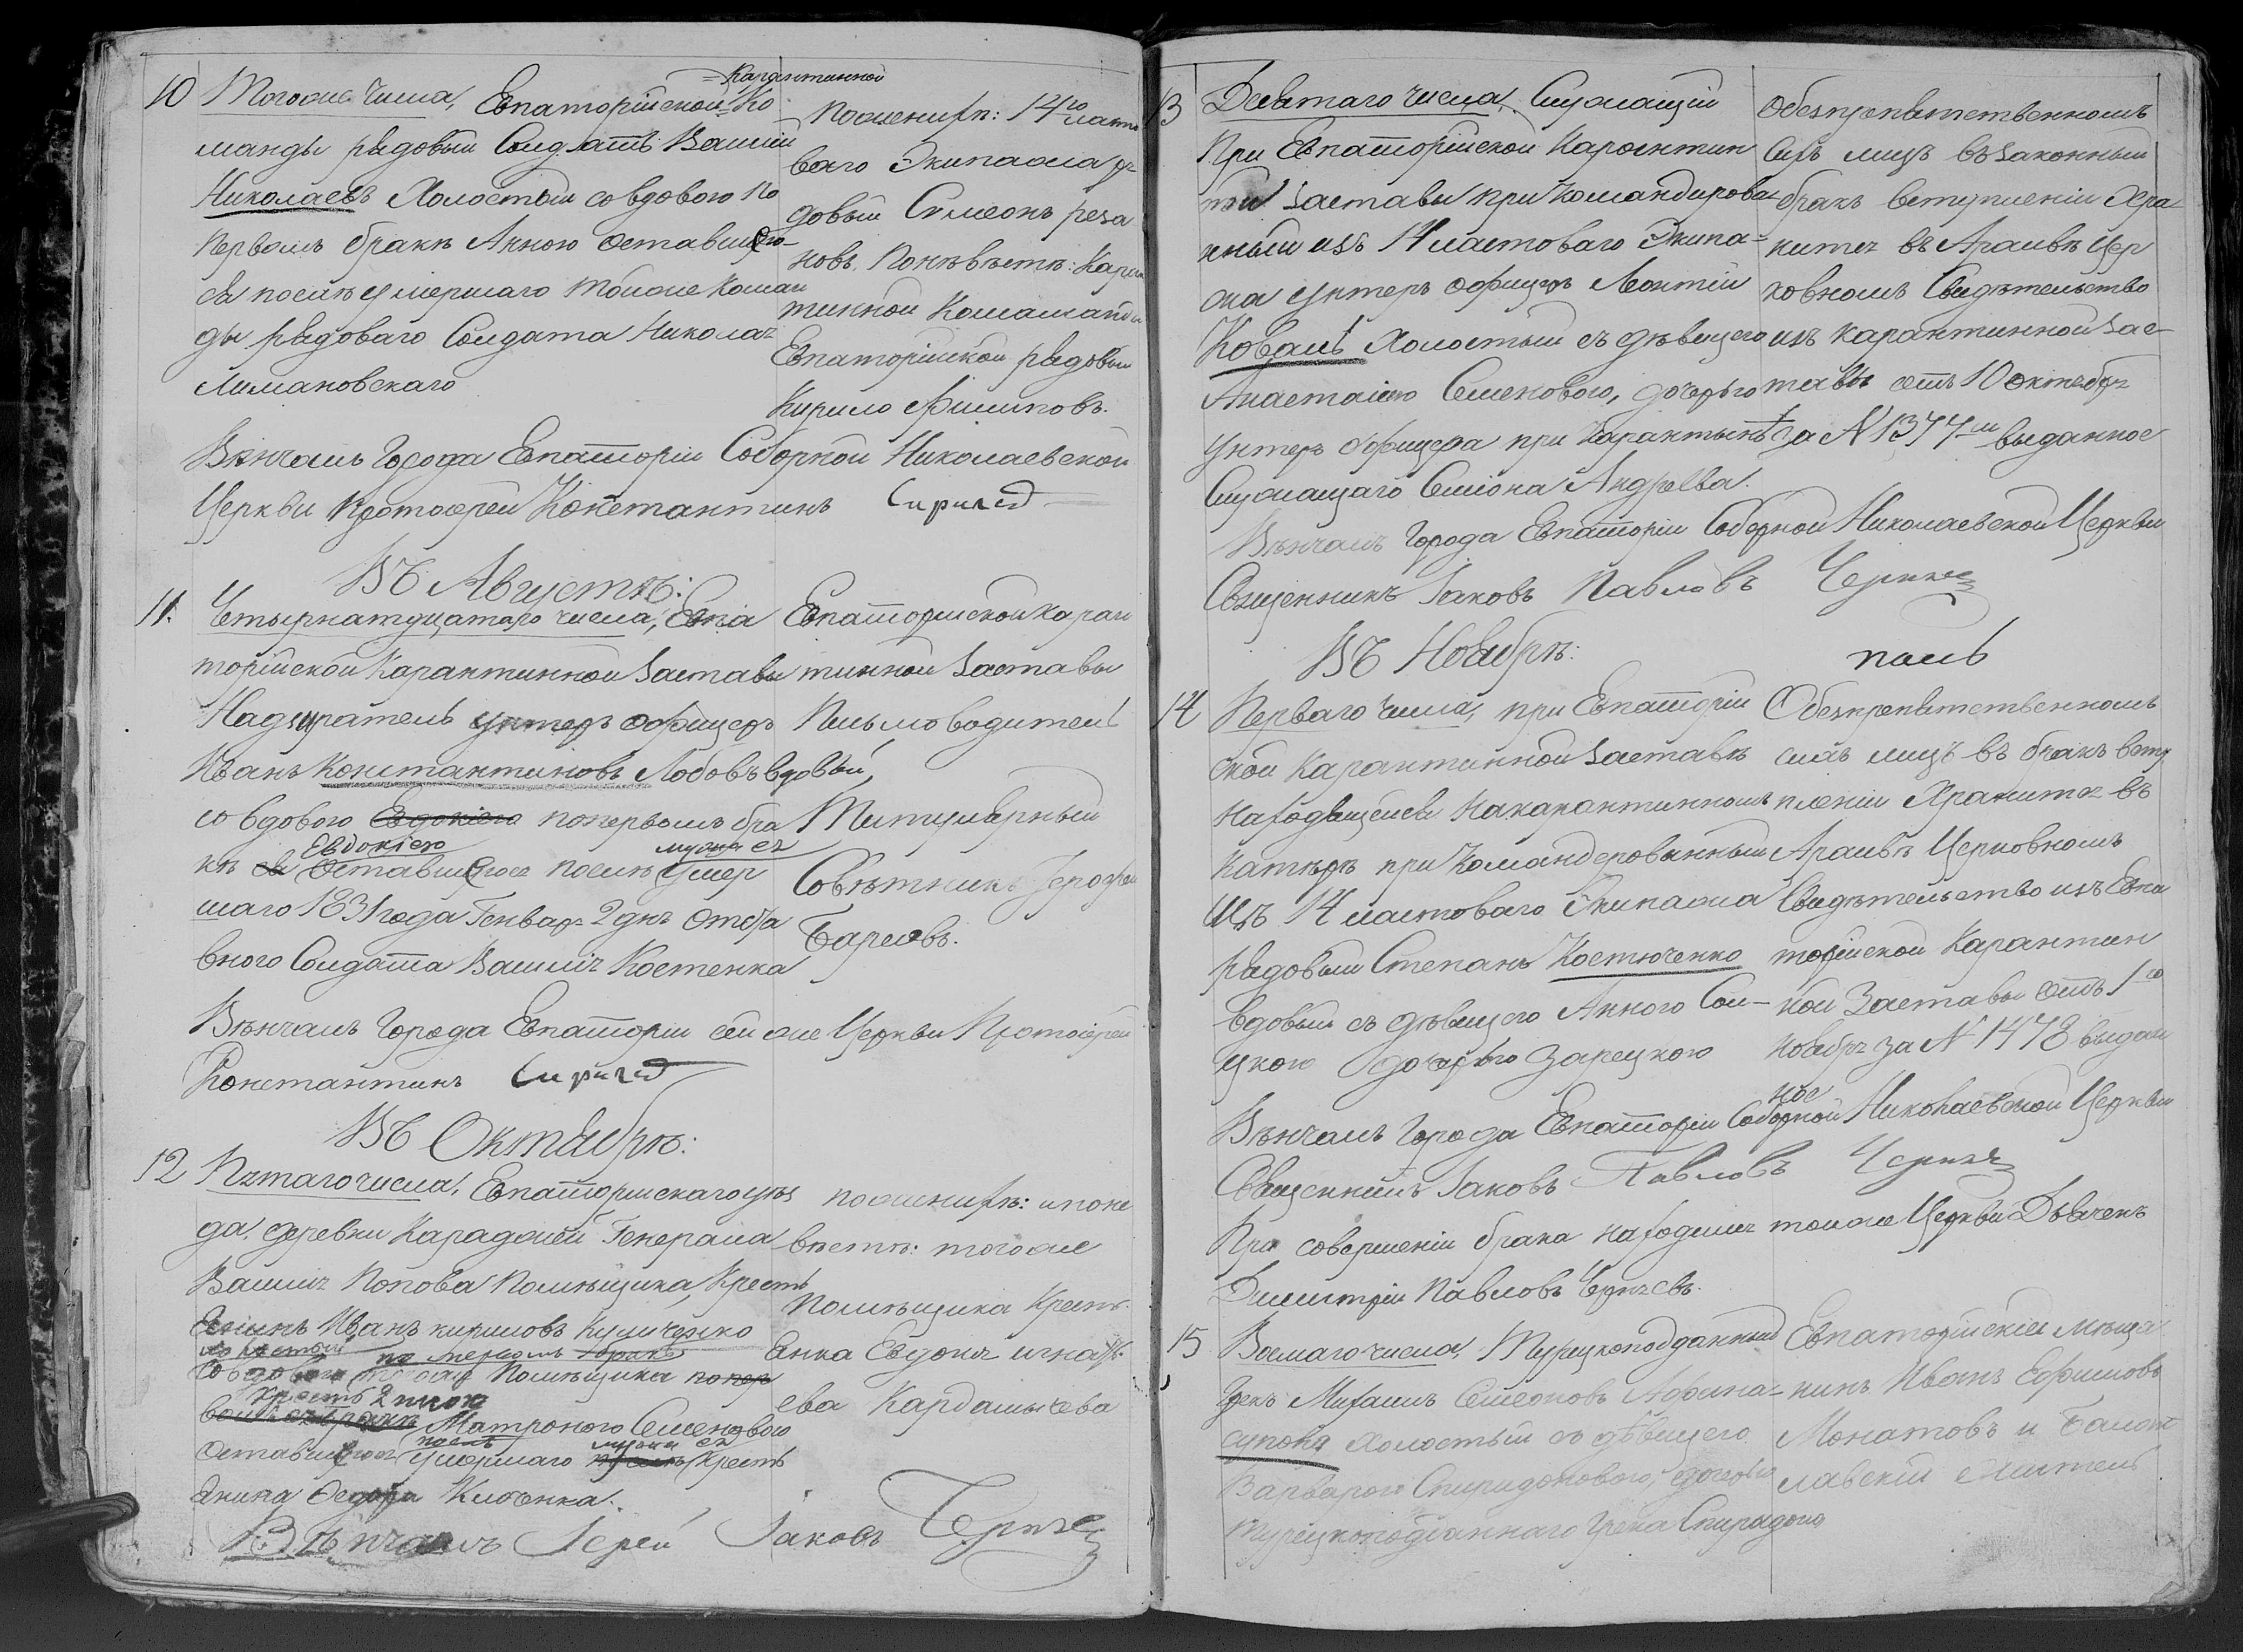 10 Тогоже числа, Евпаторийской =Карантинной Ко
манды рядовый Солдатъ Василий
Николаевъ Холостый со вдовою по
первомъ бракѣ Анною Оставшею
ся послѣ умершаго тойже Коман
ды рядоваго Солдата Николая
Лимановскаго
По женихѣ: 14го ласто
ваго Экипажа ря
довый Симеонъ реза
новъ. По невѣстѣ: Каран
тинной Командыы
Евпаторійской рядовый
Кирило Филиповъ.
Вѣнчалъ Города Евпаторіи Соборной Николаевской
Церкви Протоіерей Константинъ
Въ Августѣ:
11. Четырнатдцатаго числа, Евпа
торійской Карантинной Заставы
Надзиратель унтеръ офицеръ
Иванъ Константиновъ Лобовъ вдовый,
со вдовою Евдокіею по первомъ бра
кѣ ся Евдокіею Оставшеюся послѣ умер мужа ея
шаго 1831 года Генваря 2 дня отста
вного Солдата Василія Костенка
Евпаторійской Каран
тинной Заставы
Письмоводитель
Титулярный
Совѣтникъ
Барсовъ.
Вѣнчалъ Города Евпаторіи сей же Церкви Протоіерей
Константинъ
Въ Октябрѣ:
12 Пятаго числа, Евпаторійскаго уѣз
да, деревни Караджей Генерала
Василія Попова Помѣщика, Кресть
янинъ Иванъ кириловъ Куличенко
холостый по первомъ бракѣ
Со вдовою тогоже Помѣщика попер
Кресть
вомъ бракѣ Матроною Семеновою
Оставшеюся послѣ умершаго мужа ея Кресть
янина Федора Клоченка.
по женихѣ: и поне
вѣстѣ: тогоже
Помѣщика Кресть
янка Евдокія игнать
ева Кардашычева
Вѣнчалъ Іерей Іаковъ
13 Девятаго числа, Служащій
При Евпаторійской Карантин
ной Заставы при Командирова
нный изъ 14 ластоваго Экипа=
жа унтеръ офицеръ Леонтій
Коваль Холостый съ дѣвицею
Анастасіею Семеновою, дочерью
унтеръ офицера при Карантынѣ
Служащаго Семіона Андреева.
Обезпрепятственномъ
Сихъ лицъ въ законный
бракъ вступленіи Хра
нится въ Архивѣ Цер
ковномъ Свидѣтельство
изъ карантинной Зас
тавы отъ 10 октября
за № 1374-м выданное
Вѣнчалъ Города Евпаторіи Соборной Николаевской Церкви
Священникъ Іаковъ Павловъ
Въ Ноябрѣ:
14 Перваго числа, при Евпаторій
ской Карантинной Заставѣ
находящейся на карантинномъ
катерѣ при Командерованный
Изъ 14 ластоваго Экипажа
рядовый Степанъ Костюченко
вдовый съ дѣвицею Анною Сои-
цкою дочерью Зарецкою
Обезпрепятственномъ
сихъ лицъ въ бракъ всту
пленіи Хранится въ
Архивѣ Церковномъ
Свидѣтельство изъ Евпа
торійской Карантин
ной Заставы отъ 1го
ноября за № 1478 выдан
ное
Вѣнчалъ Города Евпаторіи Соборной Николаевской Церкви
Священникъ Іаковъ Павловъ
При совершеніи брака находился тойже Церкви Дьячекъ
Димитрій Павловъ
15 Восмаго числа, Турецкоподданный
Грекъ Михаилъ Семеоновъ Афина=
Холостый съ дѣвицею
Варварою Спиридоновою, дочерью
Турецкоподданнаго Грека Спиридона
Евпаторійскіе мѣща
нинъ Иванъ Ефимовъ
Монатовъ и Балак
лавскій житель